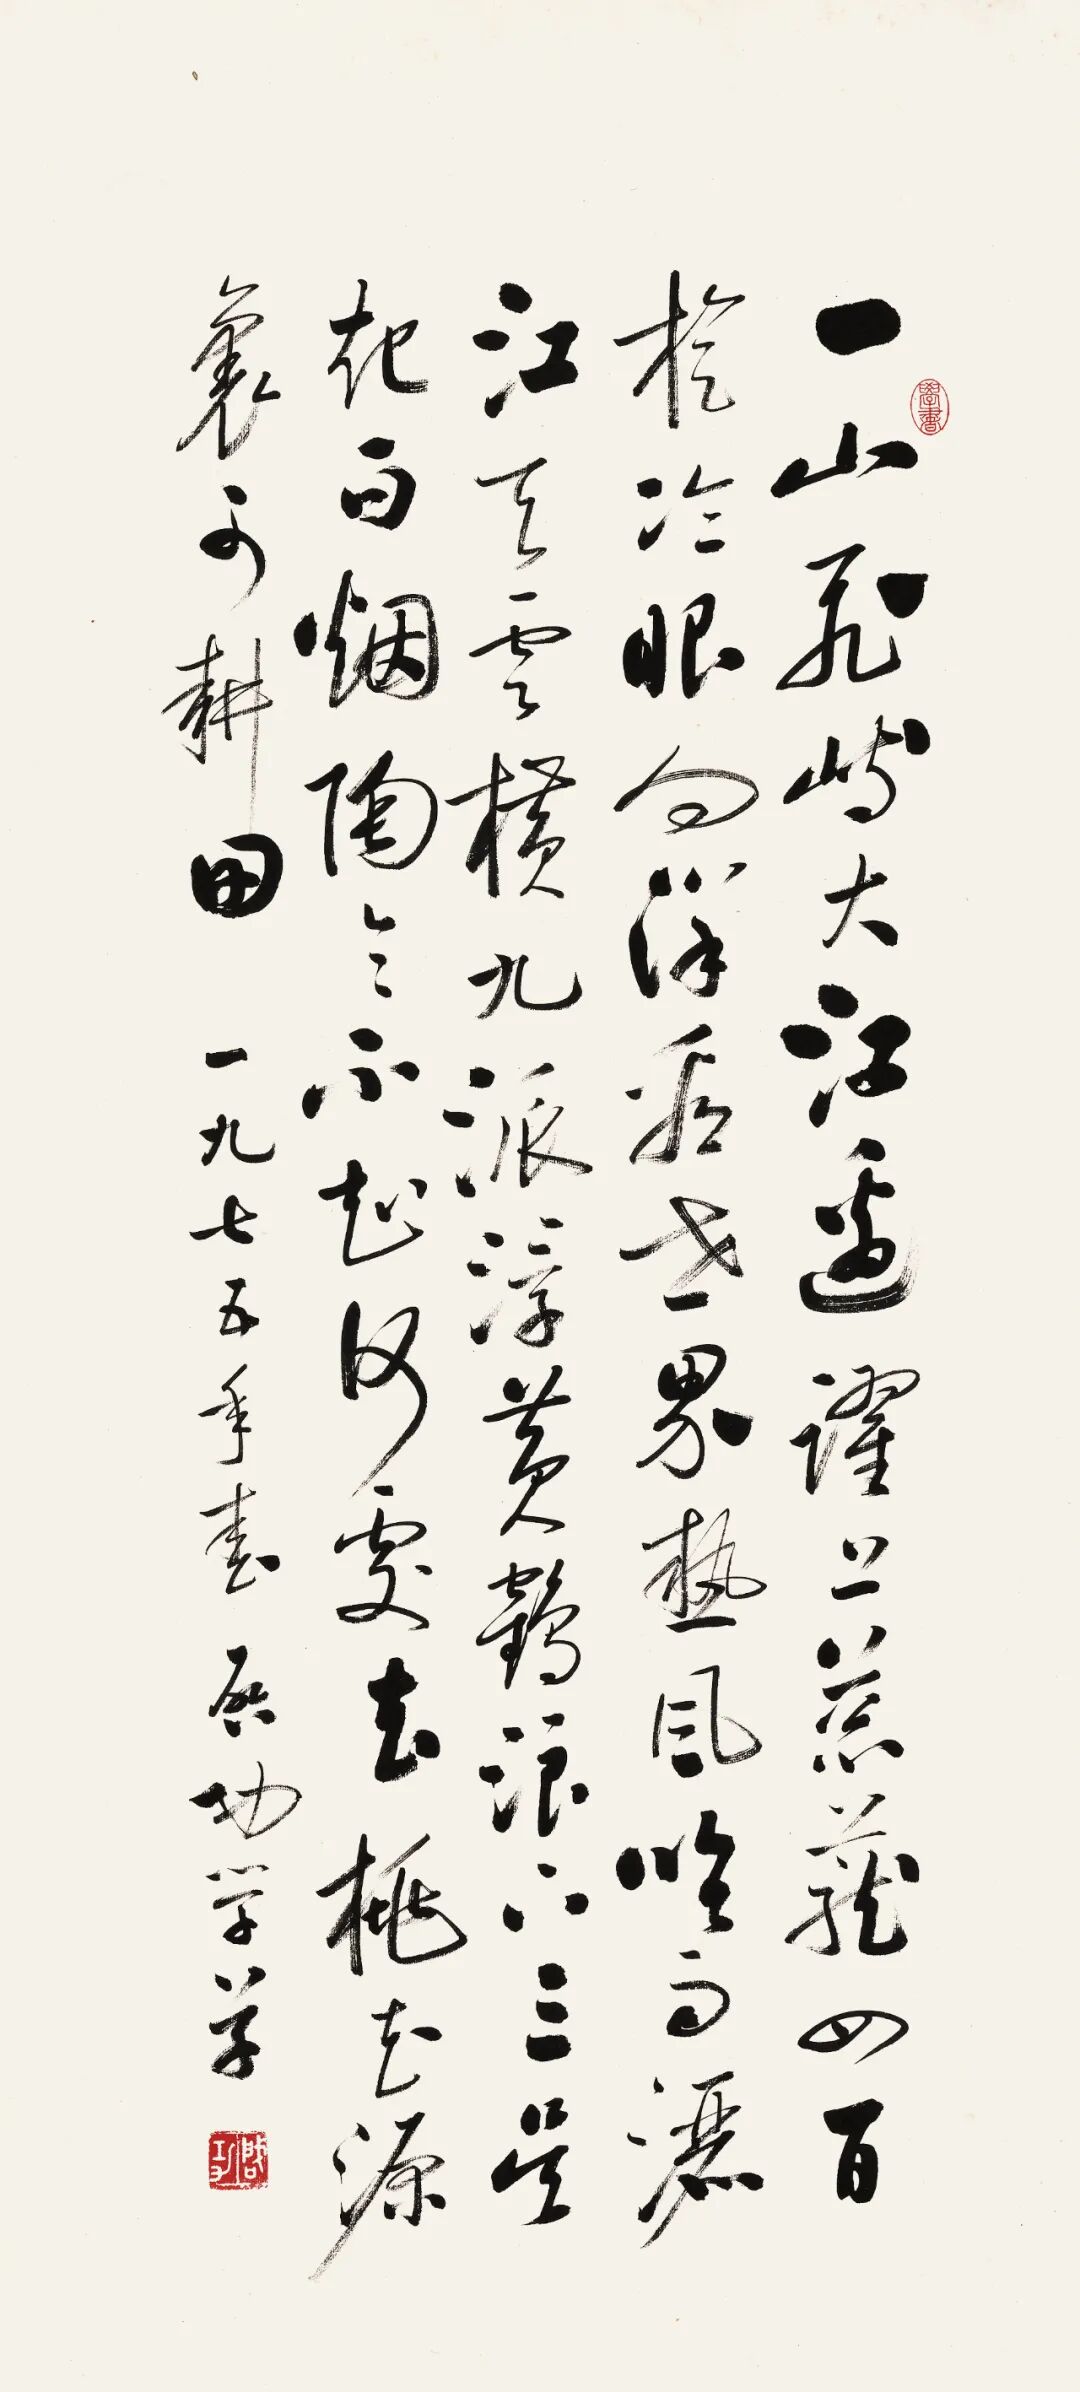 學書
一山飛峙大江邊躍上葱蘢四百
旋冷眼向洋看世界熱風吹雨灑
江天雲橫九派浮黃鶴浪下三吳
起白烟陶令不知何處去桃花源
裏可耕田 一九七五年春 啟功學草
啟功